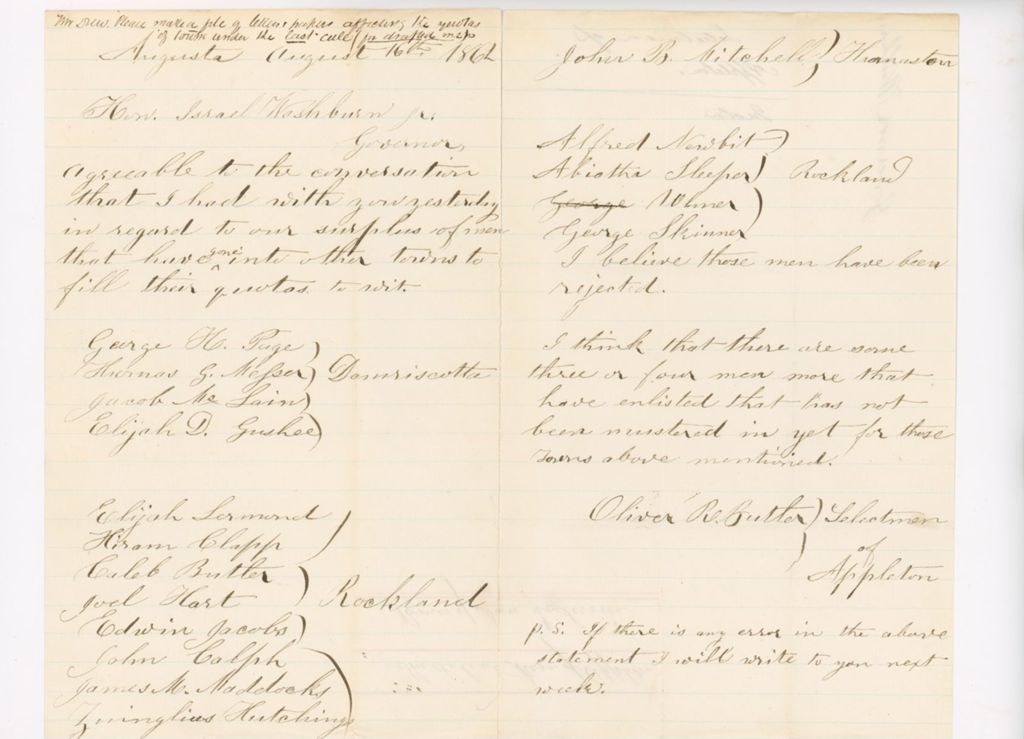 Mr Drew. Please make a file of letters & papers affecting the quotas
of towns under the last call for drafted men
Augusta August 16th 1862
Hon. Israel Washburn Jr.
Governor,
Agreeable to the conversation
that I had with you yesterday
in regard to our surplus of men
that have gone into other towns to
fill their quotas to wit.
George H. Page
Thomas G. Messer
Jacob Mc Lain
Elijah D. Gushee
Damriscotta
Elijah Lermond
Hiram Clapp
Caleb Butler
Joel Hart
Rockland
Edwin Jacobs
John Calph
James M. Maddocks
Zuinglius Hutchings
John B. Mitchell Thomaston
Alfred Newbit
Abiatha Sleeper Rockland
George Wimer
George Skinner
I believe those men have been
rejected.
I think that there are some
three or four men more that
have enlisted that has not
been mustered in yet for those
Towns above mentioned.
Oliver R. Butler Selectmen
of
Appleton
p. s. If there is any error in the above
statement I will write to you next
week.